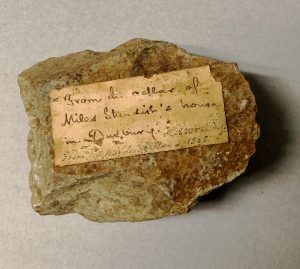 From the cellar of
Miles Standish's house
in Duxbury.
From 1865